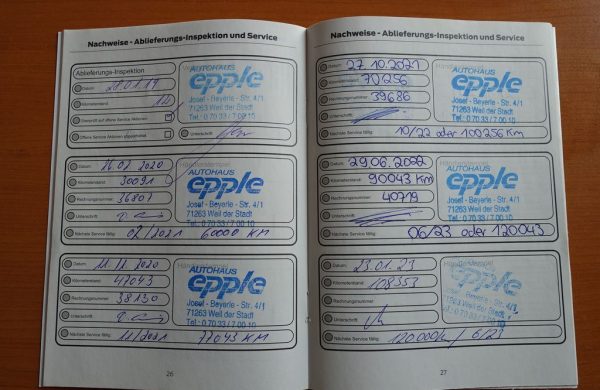 Nachweise - Ablieferungs-Inspektion und Service
Ablieferungs-Inspektion
Datum 28.01.19
Kilometerstand
Überprüft auf offene Service Aktionen
Offene Service Aktionen abgearbeitet
AUTOHAUS
epple
Josef - Beyerle - Str. 4/1
71263 Weil der Stadt
Tel.: 0 70 33 / 7 00 10
Unterschrift
Datum 26.02.2020
Kilometerstand 30091
Rechnungsnummer 36807
Unterschrift
AUTOHAUS
epple
Josef - Beyerle - Str. 4/1
71263 Weil der Stadt
Tel.: 0 70 33 / 7 00 10
Nächste Service fällig 02/2021 60000 KM
Datum 11.11.2020
Kilometerstand 47043
Rechnungsnummer 38130
Unterschrift
AUTOHAUS
epple
Josef - Beyerle - Str. 4/1
71263 Weil der Stadt
Tel.: 0 70 33 / 7 00 10
Nächste Service fällig 11/2021 77043 KM
26
Nachweise - Ablieferungs-Inspektion und Service
Datum 27.10.2021
Kilometerstand 70256
Rechnungsnummer 39686
Unterschrift
AUTOHAUS
epple
Josef - Beyerle - Str. 4/1
71263 Weil der Stadt
Tel.: 0 70 33 / 7 00 10
Nächste Service fällig 10/22 oder 100256 Km
Datum 29.06.2022
Kilometerstand 90043 Km
Rechnungsnummer 40719
Unterschrift
AUTOHAUS
epple
Josef - Beyerle - Str. 4/1
71263 Weil der Stadt
Tel.: 0 70 33 / 7 00 10
Nächste Service fällig 06/23 oder 120043
Datum 23.01.23
Kilometerstand 108353
Rechnungsnummer
Unterschrift
epple
Nächste Service fällig 120000/k / 6/23
27